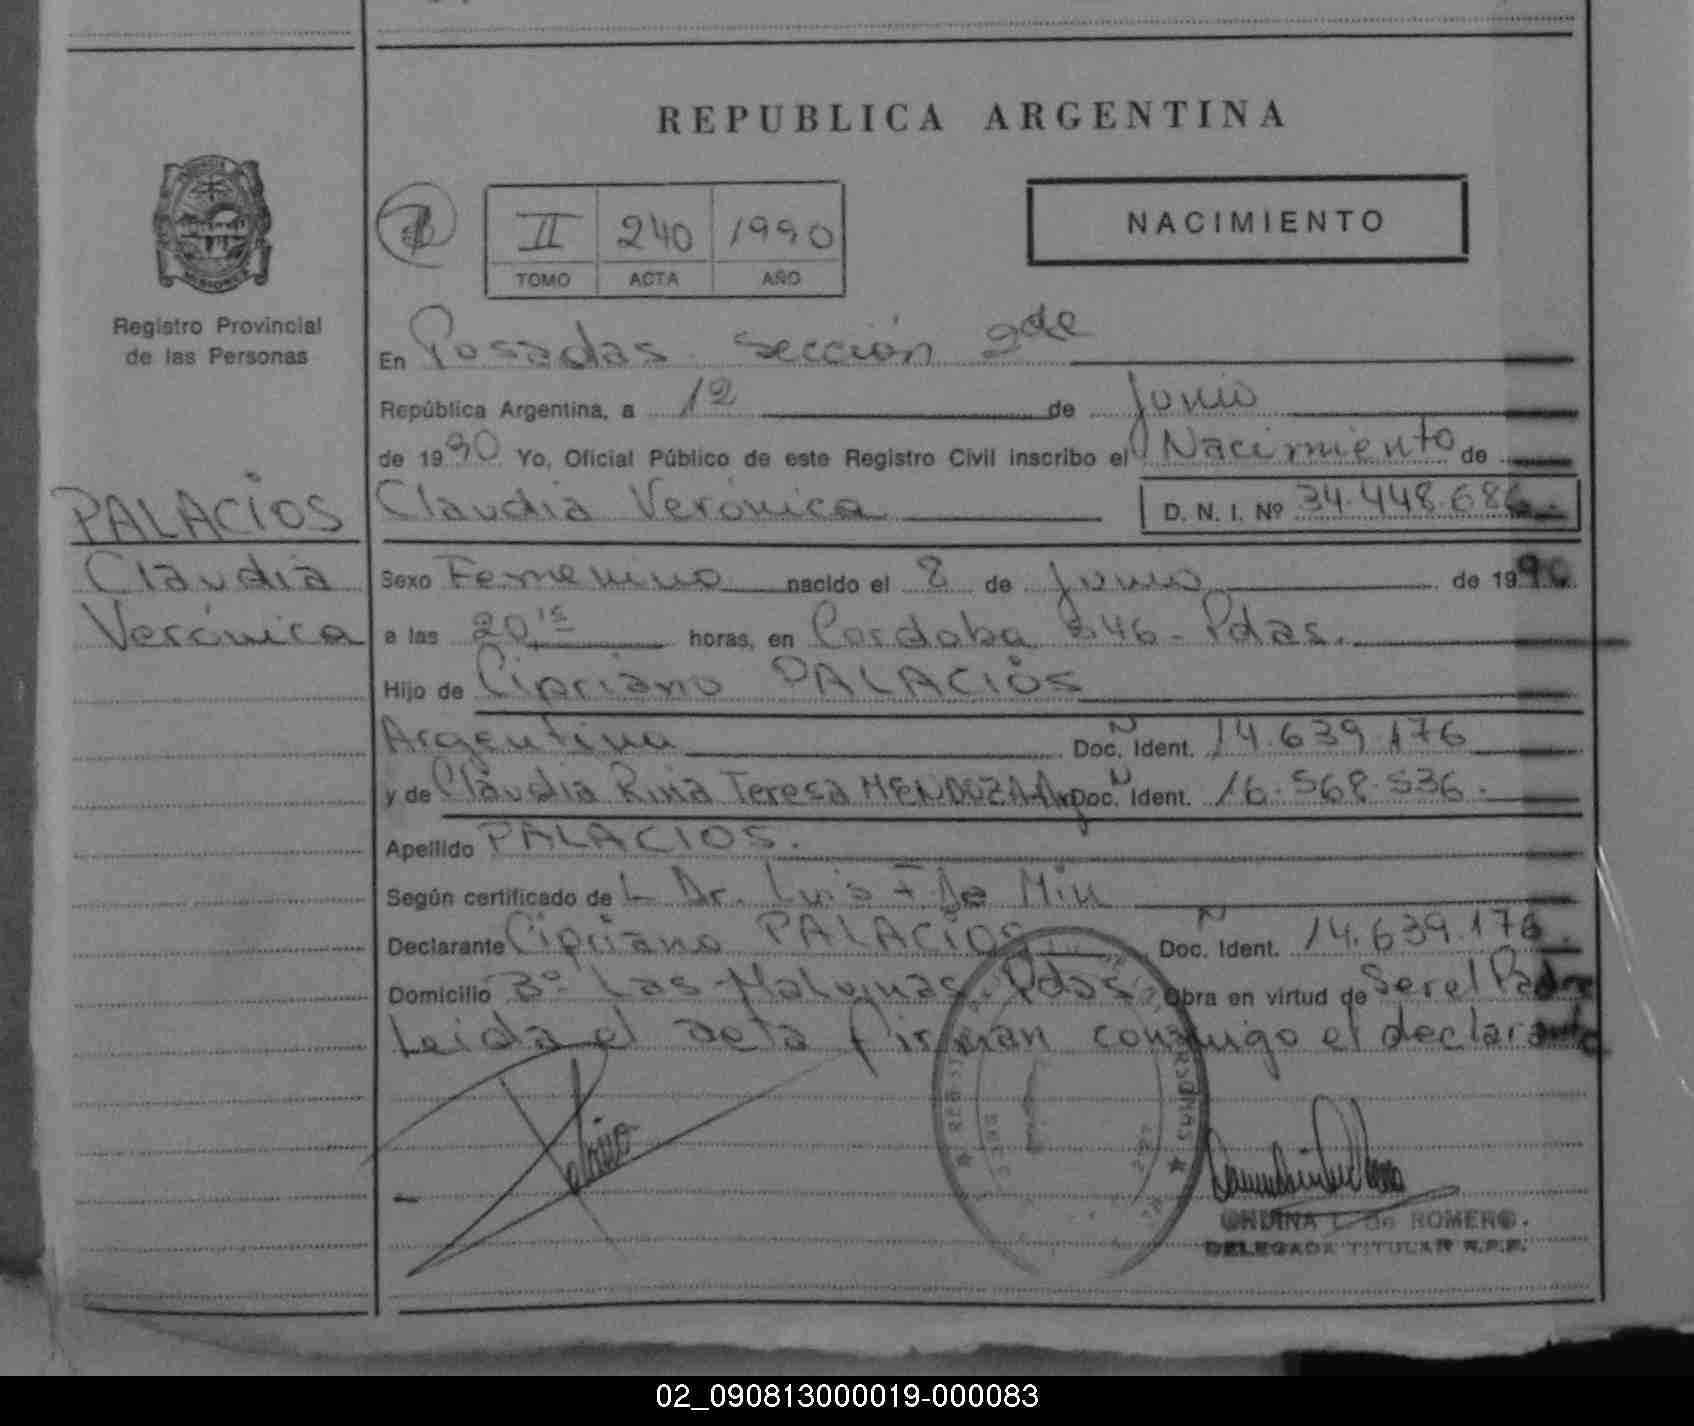 REPUBLICA ARGENTINA
II 240 1990
TOMO ACTA AÑO
NACIMIENTO
Registro Provincial
de las Personas
En Posadas sección 2da
República Argentina, a 12 de Junio
de 1990 Yo, Oficial Público de este Registro Civil inscribo el Nacimiento de
Claudia Verónica D. N. I. Nº 34.448.686.
PALACIOS
Claudia
Verónica
Sexo Femenino nacido el 8 de Junio de 1990
a las 20 15 horas, en Cordoba 846 - Pdas.
Hijo de Cipriano PALACIOS
Argentina N Doc. Ident. 14.639.176
y de Claudia Rina Teresa MENDOZA Arg N Doc. Ident. 16.568.536.
Apellido PALACIOS.
Según certificado de L Dr. Luis F De Miu
Declarante Cipriano PALACIOS N Doc. Ident. 14.639.176.
Domicilio Bº Las Malvinas. Pdas Obra en virtud de Ser el Padre
Leida el acta firman conmigo el declarante
ONDINA L. de ROMERO.
DELEGADA TITULAR R.P.P.
02_090813000019-000083